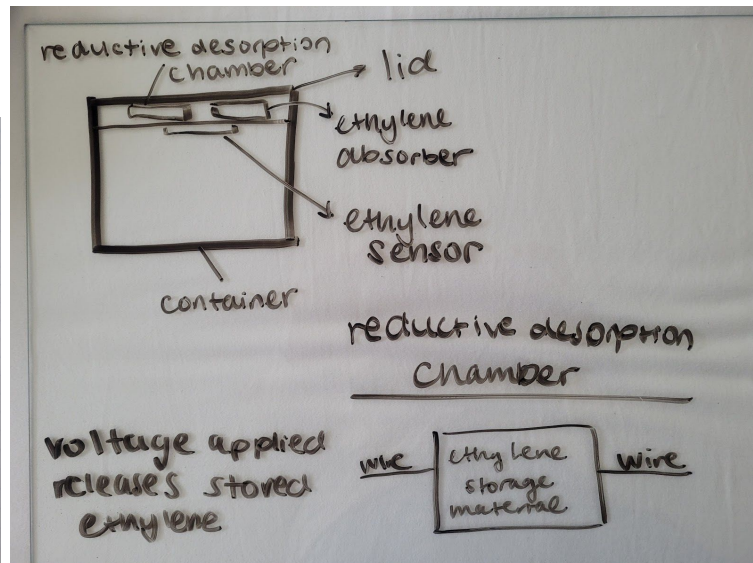 reductive desorption
chamber
lid
ethylene
absorber
ethylene
sensor
container
reductive desorption
chamber
voltage applied
releases stored
ethylene
wire
ethylene
storage
material
wire